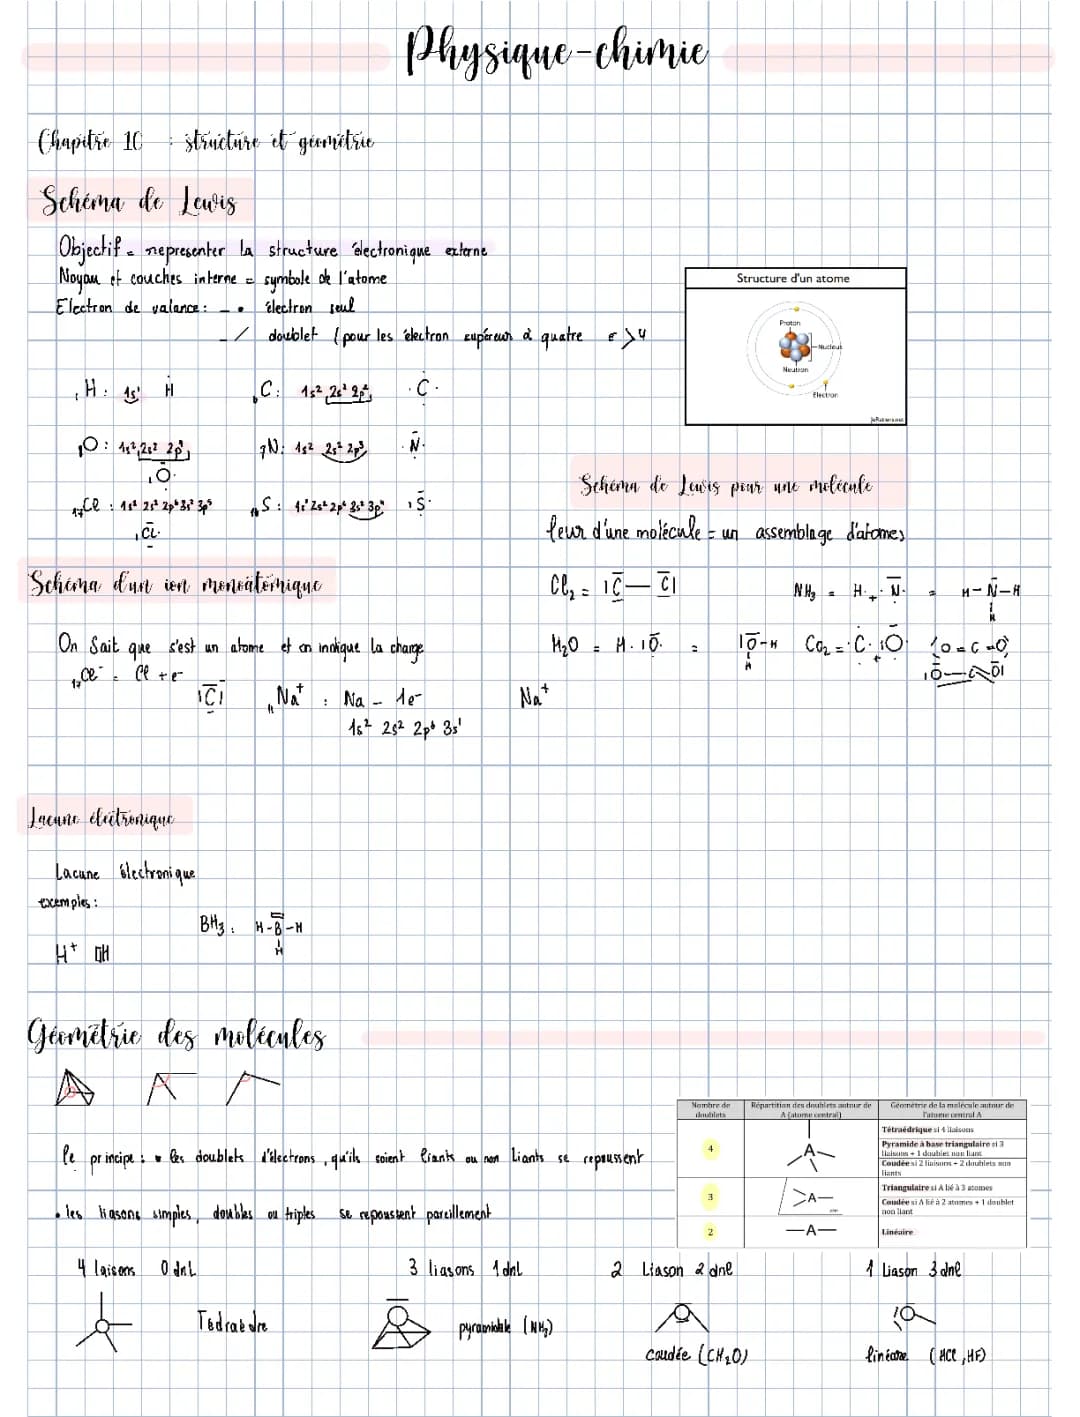 Physique-chimie
Chapitre 10 : structure et géométrie
Schéma de Lewis
Objectif = representer la structure électronique externe
Noyau et couches interne = symbole de l'atome
Electron de valance : - • électron seul
- / doublet (pour les électron supéreurs à quatre e⁻ > 4
Structure d'un atome
Proton
Nucleus
Neutron
Electron
₁H : 1s¹ Ḣ
₆C : 1s² 2s² 2p² · C ·
₈O : 1s² 2s² 2p⁴
₇N : 1s² 2s² 2p³ · N ·
O
₁₇Cl : 1s² 2s² 2p⁶ 3s² 3p⁵
₁₆S : 1s² 2s² 2p⁶ 3s² 3p⁴ S
Cl
Schéma de Lewis pour une molécule
leur d'une molécule = un assemblage d'atomes
Cl₂ = |C̄ — C̄|
NH₃ = H· + · N̄ · = H - N̄ - H
H
H₂O = H · |Ō · = |Ō - H
H
CO₂ = · C · |Ō · O = C = O
|Ō — C — Ō|
Schéma d'un ion monoatomique
On Sait que s'est un atome et on indique la charge
₁₇Cl⁻ = Cl + e⁻
|C̄|
₁₁Na⁺ : Na - 1e⁻
Na⁺
1s² 2s² 2p⁶ 3s¹
Lacune électronique
Lacune électronique
exemples :
BH₃ : H - B - H
H
H⁺ □H
Géométrie des molécules
le principe : • les doublets d'électrons, qu'ils soient liants ou non liants se repoussent
• les liasons simples, doubles ou triples se repoussent pareillement
Nombre de doublets
Répartition des doublets autour de A (atome central)
Géométrie de la molécule autour de l'atome central A
4
A
Tétraédrique si 4 liaisons
Pyramide à base triangulaire si 3 liaisons + 1 doublet non liant
Coudée si 2 liaisons + 2 doublets non liants
3
A
Triangulaire si A lié à 3 atomes
Coudée si A lié à 2 atomes + 1 doublet non liant
2
—A—
Linéaire
4 laisons 0 dnl
3 liasons 1 dnl
2 Liason 2 dne
1 Liason 3 dne
Tedraedre
pyramidale (NH₃)
coudée (CH₂O)
linéaire (HCl, HF)